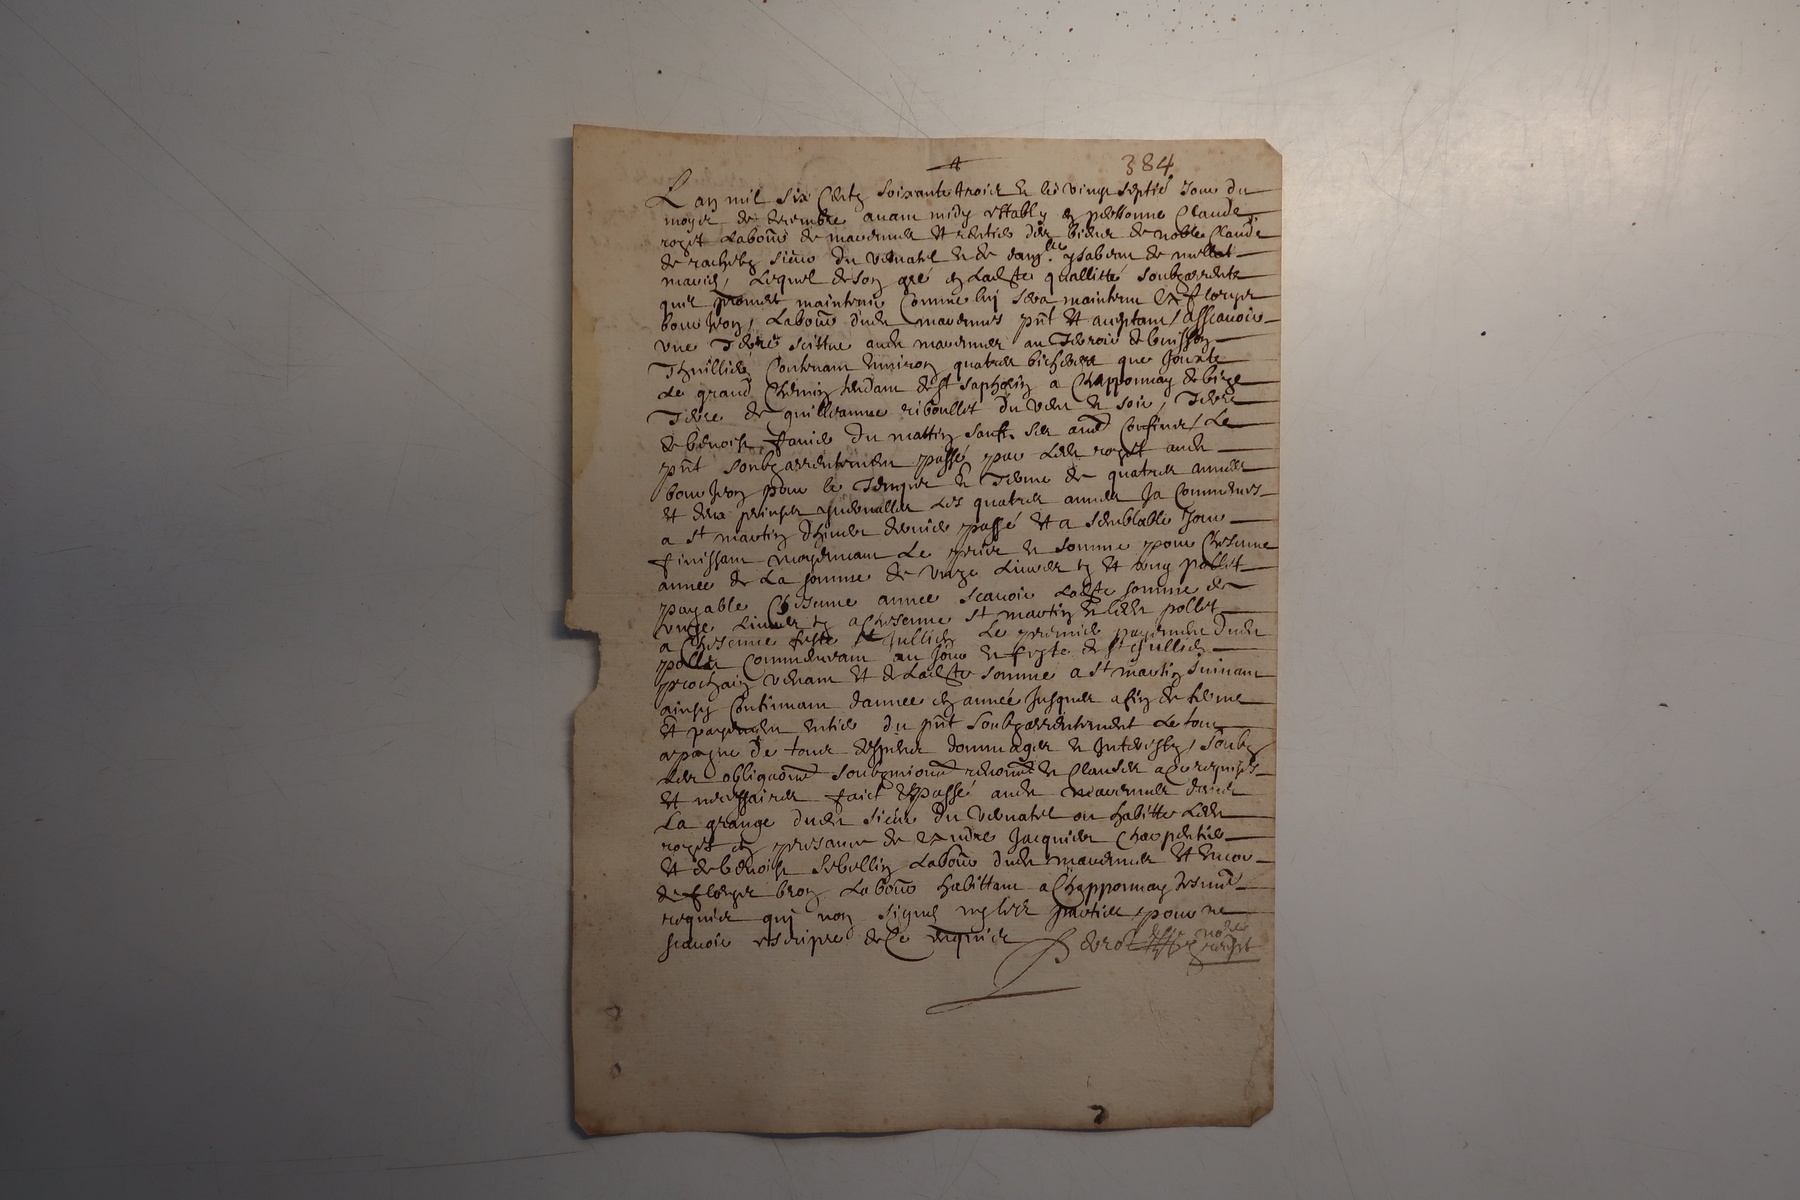 384
L an mil six Centz soixante trois et le vingt septie Jour du
moys de decembre avant midy estably en personne Claude
roget Labour de marennes et rentier des biens de noble Claude
de rachetz sieur du Vernatel et de dam.lle ysabeau de
maries, Lequel de son gré en Ladte quallitté soubzarrente
quil promet maintenir Comme luy sera maintenu a fleury
bouvron, Labour dudt marennes pnt et acceptant, assçavoir
une Terre scittue audt marennes au Terroir de buisson
Thuillier, Contenant environ quatre bicherées que Jouxte
Le grand Chemin tendant de st saphorin a Chapponnay de bize
Terre de guilleaume riboullet du vent et soir, Terre
de benoist favier du mattin sauf ses autres Confins, Le
pnt soubzarrentement passé par Ledt roget audt
bouvron pour le Temps et Terme de quatre années
et deux prinses Les quatre années Ja Commencés
a st martin dhiver dernier passé et a semblable Jour
finissant moyennant Le prix et somme pour Chescune
année de La somme de unze Livres tz et ung pollet
payable Chescune année scavoir Ladte somme de
unze Livres tz a Chescune st martin et ledt pollet
a Chescune feste st Jullien Le premier payement dudt
pollet Commencant au Jour et feste de st Jullien
prochain venant et de Ladte somme a st martin suivant
ainsy Continuant dannée en année Jusques a fin de terme
et payement entier du pnt soubzarrentement Le tout
a payne de tous despens dommages et Interestz, soubz
Les obligaons soubzmions renonons et Clauses a Ce requises
et necessaires faict et passé audt marennes dans
La grange dudt sieur du Vernatel ou habitte Ledt
roget en presance de Andre Jacquier Charpentier
et de benoist sebellin Labour dudt marennes et encor
de fleury bron Labour habittant a Chapponnay tesmoins
requis qui non signé ny les parties pour ne
scavoir escripre de Ce enquis